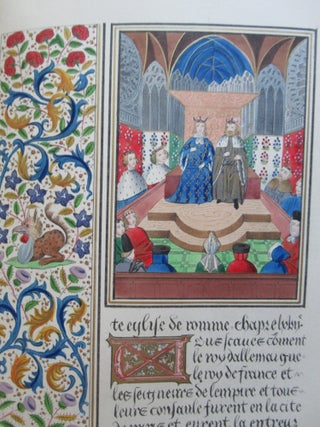 te eglise de romme. chap̄e lxviiȷ̄.
Ous scaues cōment
le roy dallemaigne
le roy de france et
les seigneurs de lempire et tous
leurs consaulx furent en la cite
de et eurent la entreulx